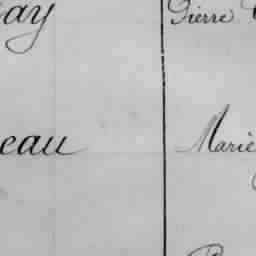 ay Pierre
eau Marie